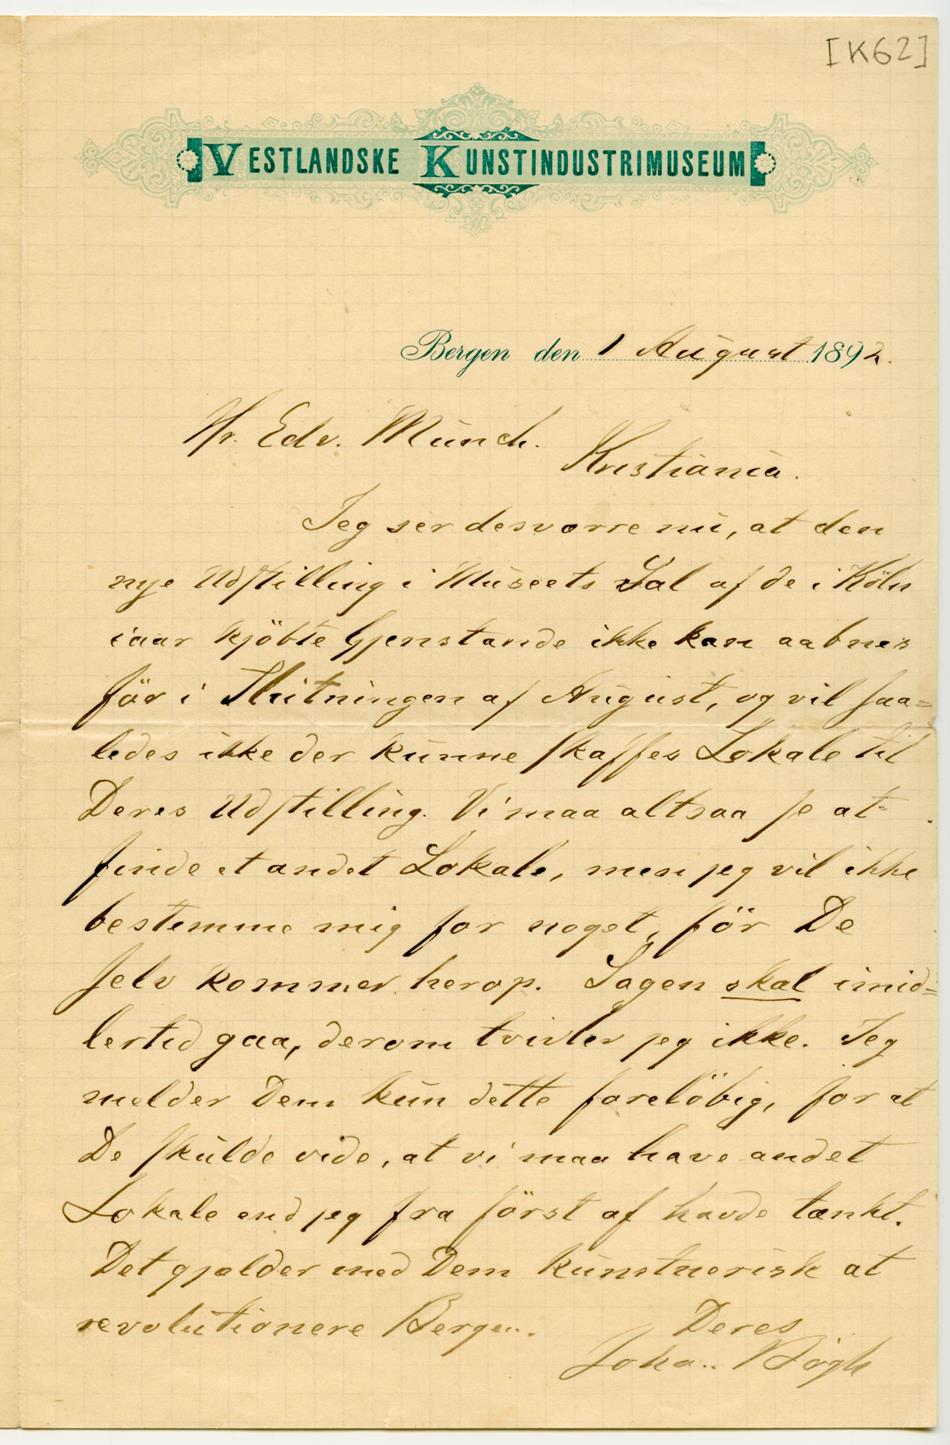 [K62]
VESTLANDSKE KUNSTINDUSTRIMUSEUM
Bergen den 1 August 1892.
Hr. Edv. Munch.
Kristiania.
Jeg ser desværre nu, at den
nye Udstilling i Museets Sal af de i Köln
iaar kjöbte Gjenstande ikke kan aabnes
för i Slutningen af August, og vil saa=
ledes ikke der kunne skaffes Lokale til
Deres Udstilling. Vi maa altsaa se at
finde et andet Lokale, men jeg vil ikke
bestemme mig for noget, för De
selv kommer herop. Sagen skal imid=
lertid gaa, derom tvivler jeg ikke. Jeg
melder Dem kun dette foreløbig, for at
De skulde vide, at vi maa have andet
Lokale end jeg fra först af havde tænkt.
Det gjælder med Dem kunstnerisk at
revolutionere Bergen.
Deres
Johan Bögh